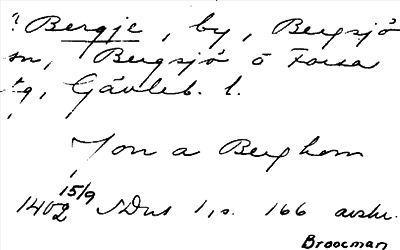 ? Bergje, by, Bergsjö
sn, Bergsjö o Forsa
tg, Gävleb. l.
Jon a Berghom
15/9
1402 SDns 1, s. 166 avskr.
Broocman